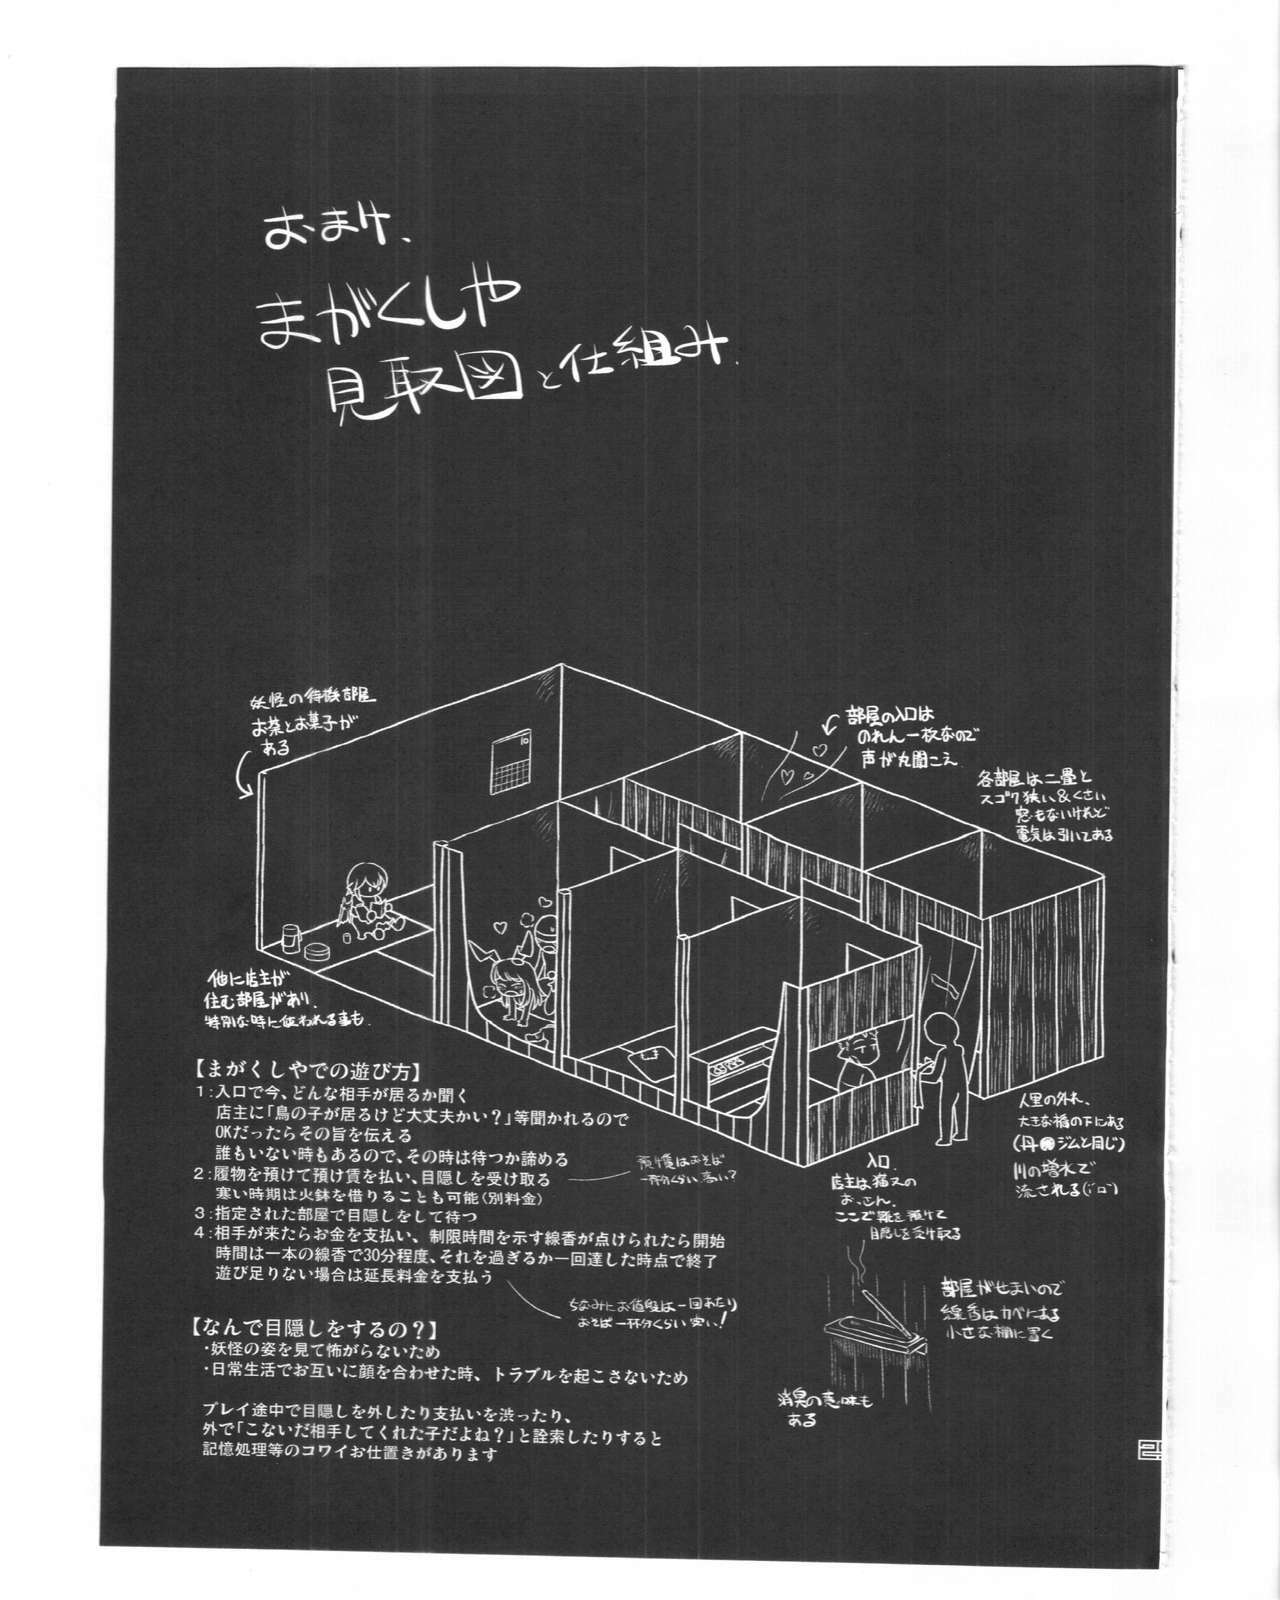 おまけ、
まがくしや
見取図と仕組み.
妖怪の待機部屋
お茶とお菓子が
ある
部屋の入口は
のれん一枚なので
声が丸聞こえ
各部屋は二畳と
スゴク狭い&くさい
窓もないけれど
電気は引いてある
他に店主が
住む部屋があり.
特別な時に使われる事も.
【まがくしやでの遊び方】
1:入口で今、どんな相手が居るか聞く
店主に「鳥の子が居るけど大丈夫かい?」等聞かれるので
OKだったらその旨を伝える
誰もいない時もあるので、その時は待つか諦める
2:履物を預けて預け賃を払い、目隠しを受け取る
寒い時期は火鉢を借りることも可能(別料金)
3:指定された部屋で目隠しをして待つ
4:相手が来たらお金を支払い、制限時間を示す線香が点けられたら開始
時間は一本の線香で30分程度、それを過ぎるか一回達した時点で終了
遊び足りない場合は延長料金を支払う
預け賃はおそば
一杯分くらい 高い?
ちなみにお値段は一回あたり
おそば一杯分くらい 安い!
入口.
店主は猫又の
おっさん.
ここで靴を預けて
目隠しを受け取る
人里の外れ、
大きな橋の下にある
(丹●ジムと同じ)
川の増水で
流される
部屋がせまいので
線香はカベにある
小さな棚に置く
消臭の意味も
ある
【なんで目隠しをするの?】
・妖怪の姿を見て怖がらないため
・日常生活でお互いに顔を合わせた時、トラブルを起こさないため
プレイ途中で目隠しを外したり支払いを渋ったり、
外で「こないだ相手してくれた子だよね?」と詮索したりすると
記憶処理等のコワイお仕置きがあります